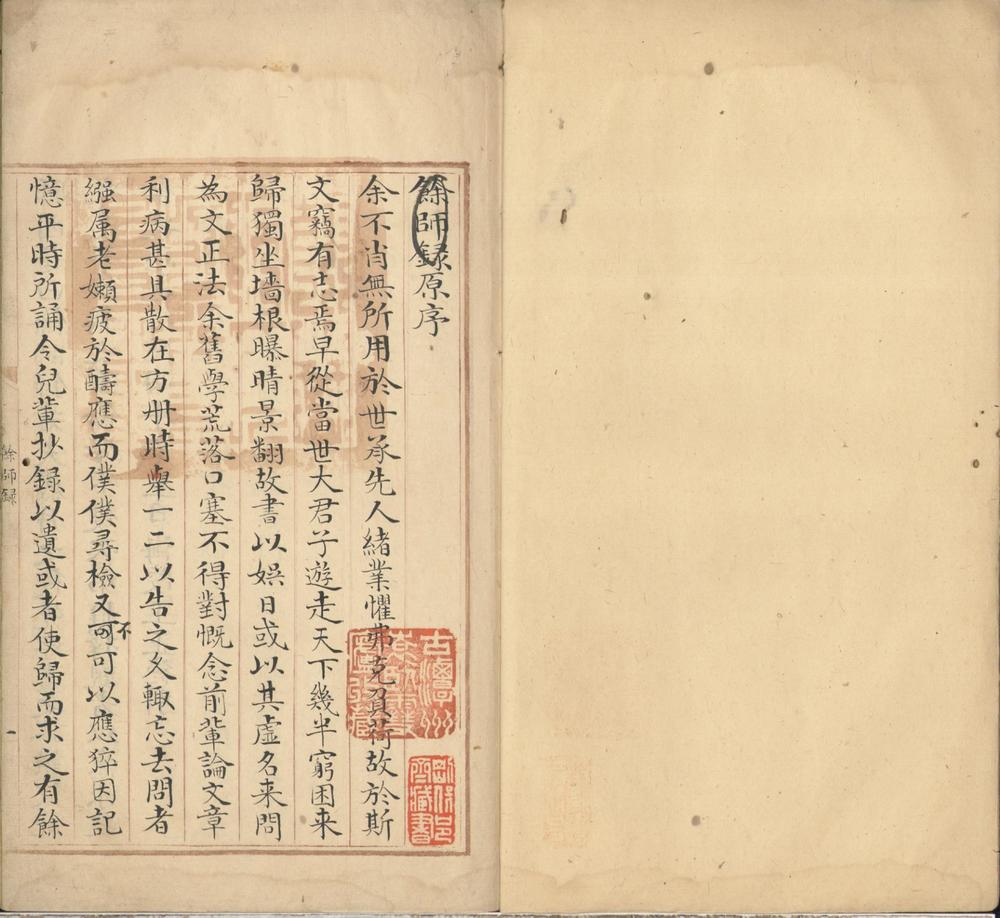 餘師録原序
余不肖無所用於世承先人緒業懼弗克負荷故於斯
文竊有志焉早從當世大君子遊走天下幾半窮困来
歸獨坐墻根曝晴景翻故書以娯日或以其虚名来問
為文正法余舊學荒落口塞不得對慨念前輩論文章
利病甚具散在方冊時舉一二以告之久輙忘去問者
繦属老嬾疲於醻應而僕僕尋檢又可不可以應猝因記
憶平時所誦令兒輩抄録以遺或者使歸而求之有餘
餘師録
一